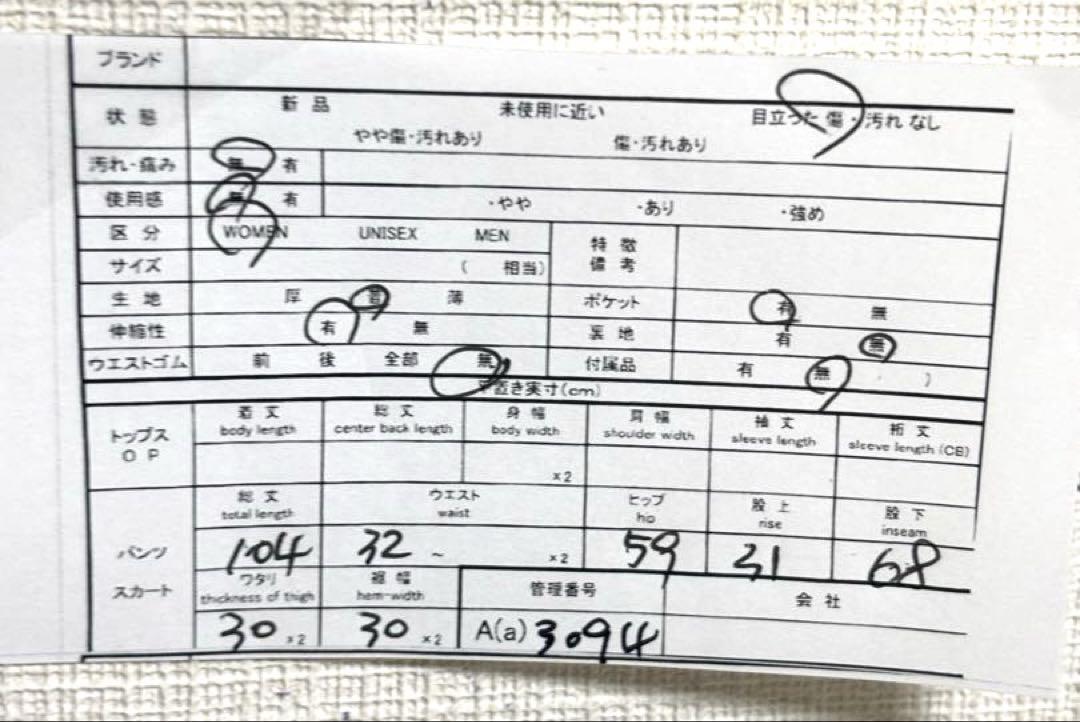 ブランド
状態 新品 未使用に近い 目立った傷・汚れなし
やや傷・汚れあり 傷・汚れあり
汚れ・痛み 無 有
使用感 無 有 ・やや ・あり ・強め
区分 WOMEN UNISEX MEN 特徴 備考
サイズ ( 相当)
生地 厚 普 薄 ポケット 有 無
伸縮性 有 無 裏地 有 無
ウエストゴム 前 後 全部 無 付属品 有 無 )
平置き実寸(cm)
トップス OP 着丈 総丈 身幅 肩幅 袖丈 裄丈
body length center back length body width shoulder width sleeve length sleeve length (CB)
x2
総丈 ウエスト ヒップ 股上 股下
total length waist hip rise inseam
パンツ 104 32 ~ x2 59 31 68
スカート ワタリ 裾幅 管理番号 会社
thickness of thigh hem-width
30 x2 30 x2 A(a) 3094